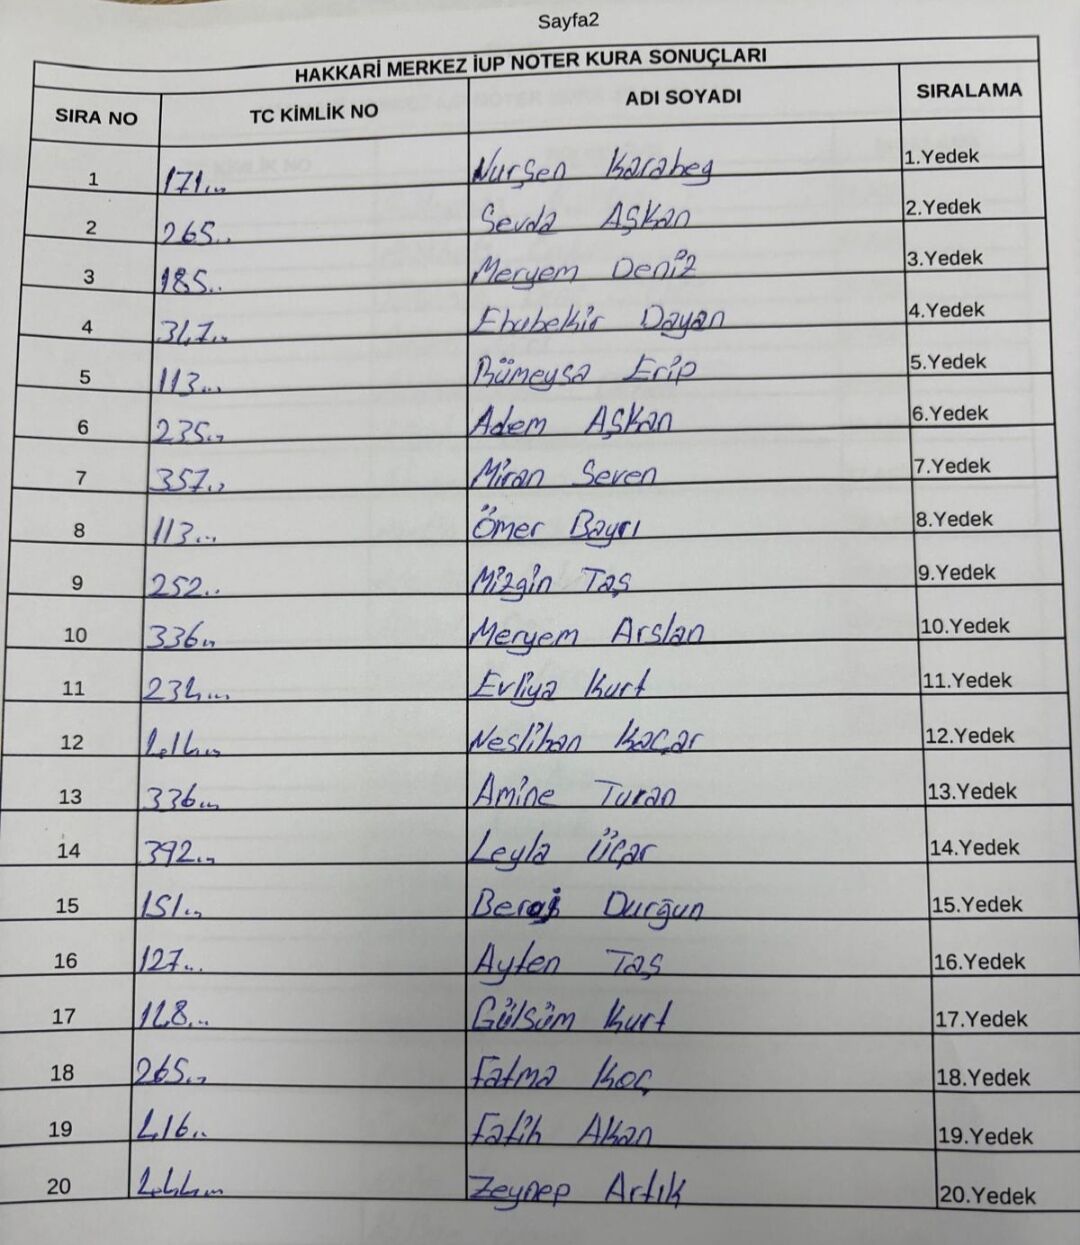 Sayfa2
HAKKARİ MERKEZ İUP NOTER KURA SONUÇLARI
SIRA NO TC KİMLİK NO ADI SOYADI SIRALAMA
1 171... Nurşen Karabeg 1.Yedek
2 265.. Sevda Aşkan 2.Yedek
3 185.. Meryem Deniz 3.Yedek
4 347... Ebubekir Dayan 4.Yedek
5 113... Rümeysa Erip 5.Yedek
6 235... Adem Aşkan 6.Yedek
7 357... Miran Seven 7.Yedek
8 113... Ömer Bayrı 8.Yedek
9 252.. Mizgin Taş 9.Yedek
10 336... Meryem Arslan 10.Yedek
11 234... Evliya Kurt 11.Yedek
12 Neslihan Kaçar 12.Yedek
13 336... Amine Turan 13.Yedek
14 392... Leyla Üçar 14.Yedek
15 151... Durğun 15.Yedek
16 127... Ayten Taş 16.Yedek
17 148... Gülsüm Kurt 17.Yedek
18 265... Fatma Koç 18.Yedek
19 416.. Fatih Akan 19.Yedek
20 Zeynep Artık 20.Yedek